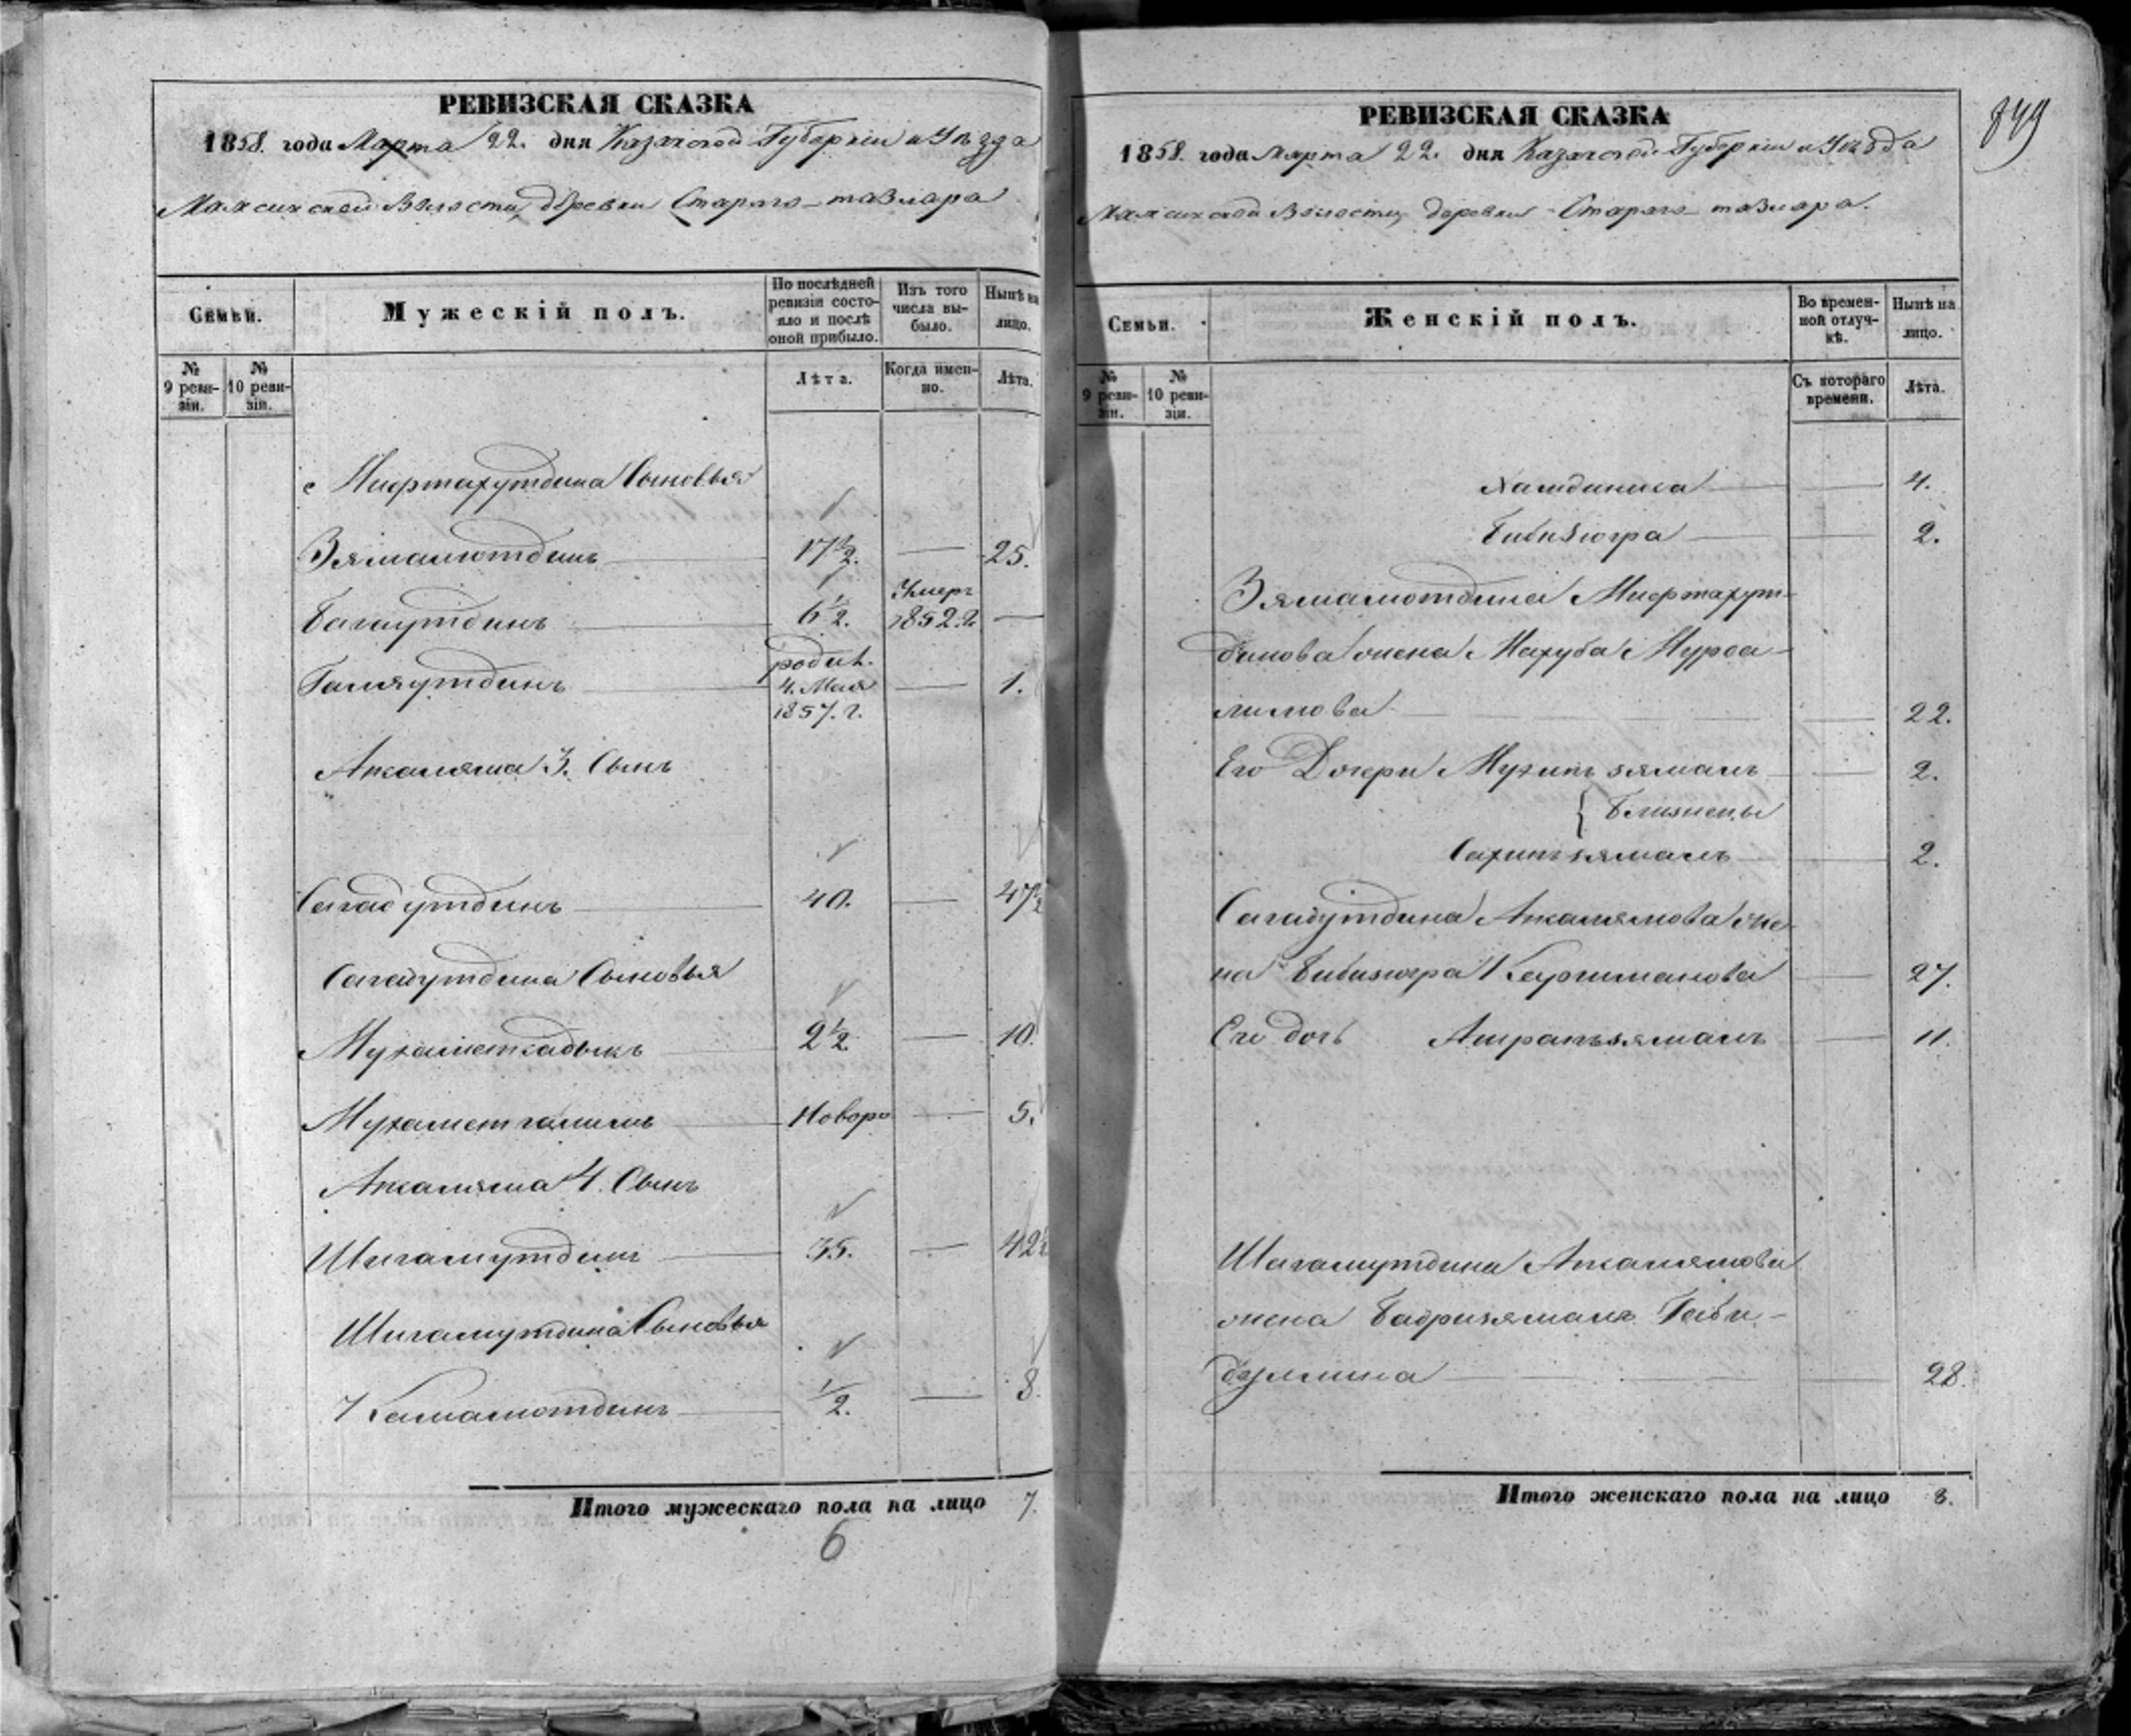 РЕВИЗСКАЯ СКАЗКА
1858. года Марта 22. дня Казанской Губерніи и Уѣзда
Мамсинской Волости, деревни Стараго-тазлара
Семьи.
Мужескій полъ.
По послѣдней ревизіи состо-
яло и послѣ оной прибыло.
Изъ того числа вы-
было.
Нынѣ на лицо.
№ 9 реви-
зіи.
№ 10 реви-
зіи.
Лѣта.
Когда имен-
но.
Лѣта.
Мифтахутдина Сыновья
Зямалютдинъ 17½. — 25.
Багаутдинъ 6½. Умеръ 1852. г. —
Галяутдинъ родил. 4. Мая 1857. г. — 1.
Апкаляма 3. Сынъ
Сагадутдинъ 40. — 47½
Сагадутдина Сыновья
Мухаметсадыкъ 2½. — 10.
Мухаметгалимъ Новоро — 5.
Апкаляма 4. Сынъ
Шигамутдинъ 35. — 42½
Шигамутдина Сыновья
Камалютдинъ ½. — 8.
Итого мужескаго пола на лицо 7.
6
849
РЕВИЗСКАЯ СКАЗКА
1858. года Марта 22. дня Казанской Губерніи и Уѣзда
Мамсинской Волости, деревни Стараго тазлара.
Семьи.
Женскій полъ.
Во времен-
ной отлуч-
кѣ.
Нынѣ на лицо.
№ 9 реви-
зіи.
№ 10 реви-
зіи.
Съ котораго времени.
Лѣта.
Хамдиниса — 4.
Бибизюгра — 2.
Зямалютдина Мифтахут-
динова жена Махуба Мурса-
лимова — 22.
Его Дочери Мухипзямалъ — 2.
{ Близнецы
Сахипзямалъ — 2.
Сагадутдина Апкалямова же-
на Бибизюгра Курмманова — 27.
Его дочь Ашрапзямалъ — 11.
Шагамутдина Апкалямова
жена Бадризямалъ Габи-
дуллина — 28.
Итого женскаго пола на лицо 8.